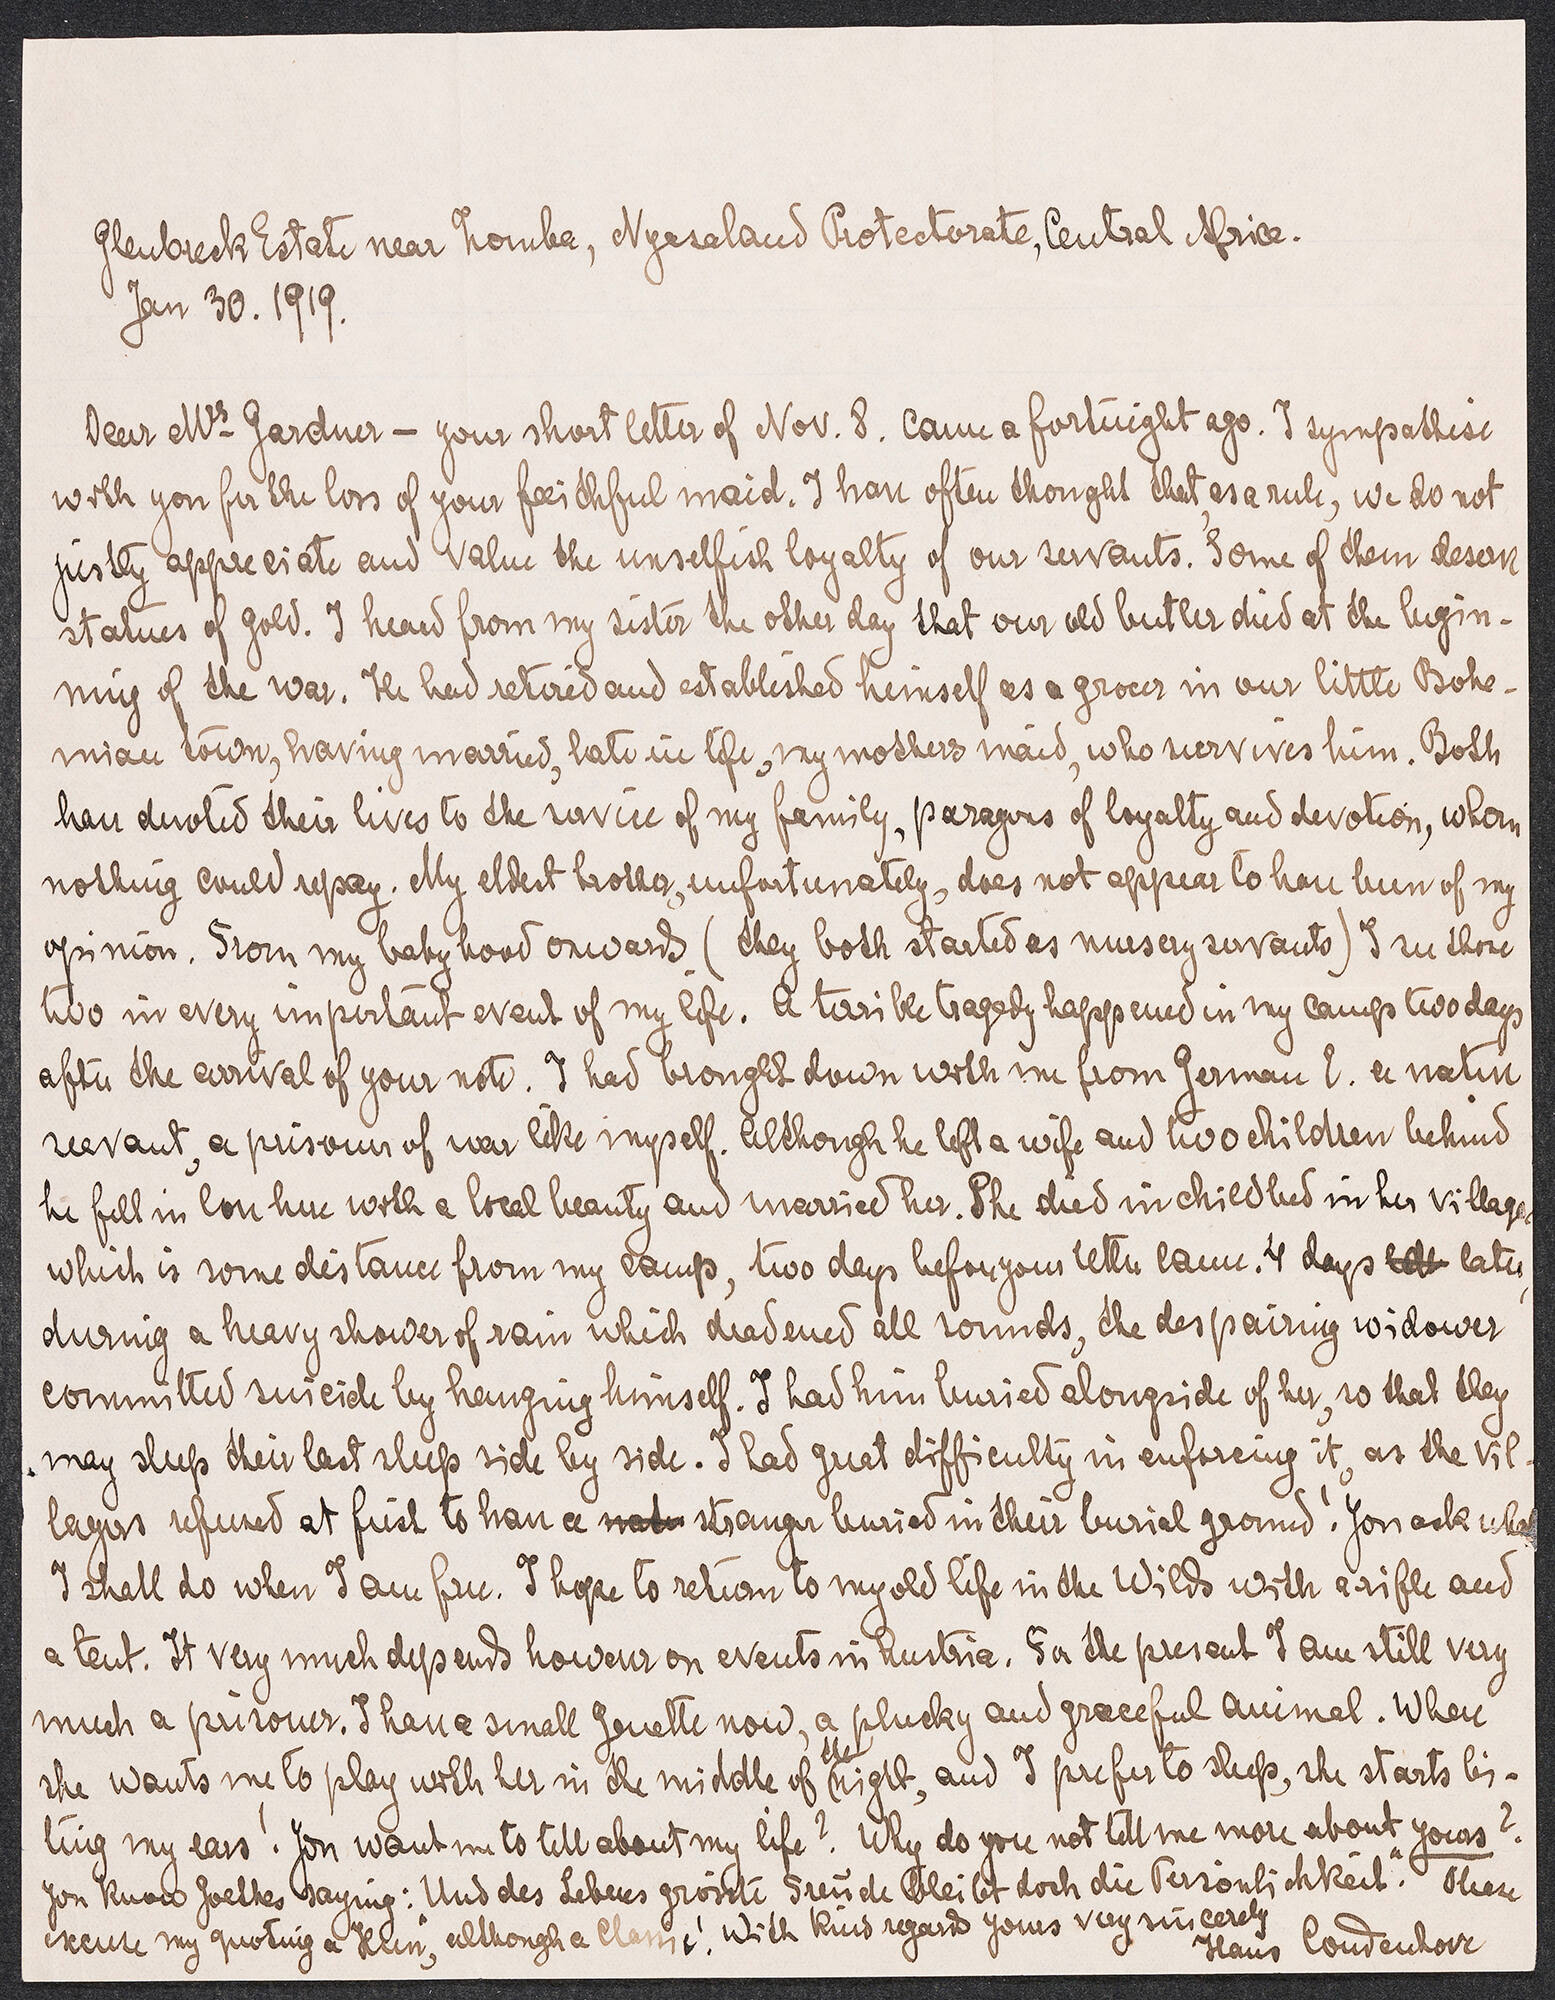 Glenbreck Estate near Zomba, Nyasaland Protectorate, Central Africa.
Jan 30. 1919.
Dear Mrs Gardner — your short letter of Nov. 8. came a fortnight ago. I sympathise
with you for the loss of your faithful maid. I have often thought that, as a rule, we do not
justly appreciate and value the unselfish loyalty of our servants. Some of them deserve
statues of gold. I heard from my sister the other day that our old butler died at the begin-
ning of the war. He had retired and established himself as a grocer in our little Bohe-
mian town, having married, late in life, my mothers maid, who survives him. Both
have devoted their lives to the service of my family, paragons of loyalty and devotion, whom
nothing could repay. My eldest brother, unfortunately, does not appear to have been of my
opinion. From my babyhood onwards (they both started as nursery servants) I see those
two in every important event of my life. A terrible tragedy happened in my camp two days
after the arrival of your note. I had brought down with me from German E. a native
servant, a prisoner of war like myself. Although he left a wife and two children behind
he fell in love here with a local beauty and married her. She died in childbed in her village,
which is some distance from my camp, two days before your letter came. 4 days later,
during a heavy shower of rain which deadened all sounds, the despairing widower
committed suicide by hanging himself. I had him buried alongside of her, so that they
may sleep their last sleep side by side. I had great difficulty in enforcing it, as the vil-
lagers refused at first to have a stranger buried in their burial ground! You ask what
I shall do when I am free. I hope to return to my old life in the Wilds with a rifle and
a tent. It very much depends however on events in Austria. For the present I am still very
much a prisoner. I have a small Genette now, a plucky and graceful animal. When
she wants me to play with her in the middle of the night, and I prefer to sleep, she starts bi-
ting my ears! You want me to tell about my life? Why do you not tell me more about yours?
You know Goethes saying: "Und des Lebens grösste Freude Bleibt doch die Persönlichkeit." Please
excuse my quoting a "Hun", although a Classic! With kind regards yours very sincerely
Hans Coudenhove